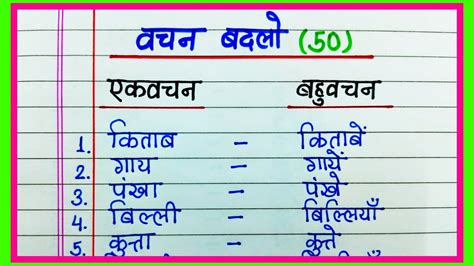 वचन बदलो (50)
एकवचन बहुवचन
1. किताब – किताबें
2. गाय – गायें
3. पंखा – पंखे
4. बिल्ली – बिल्लियाँ
5. कुत्ता – कुत्ते